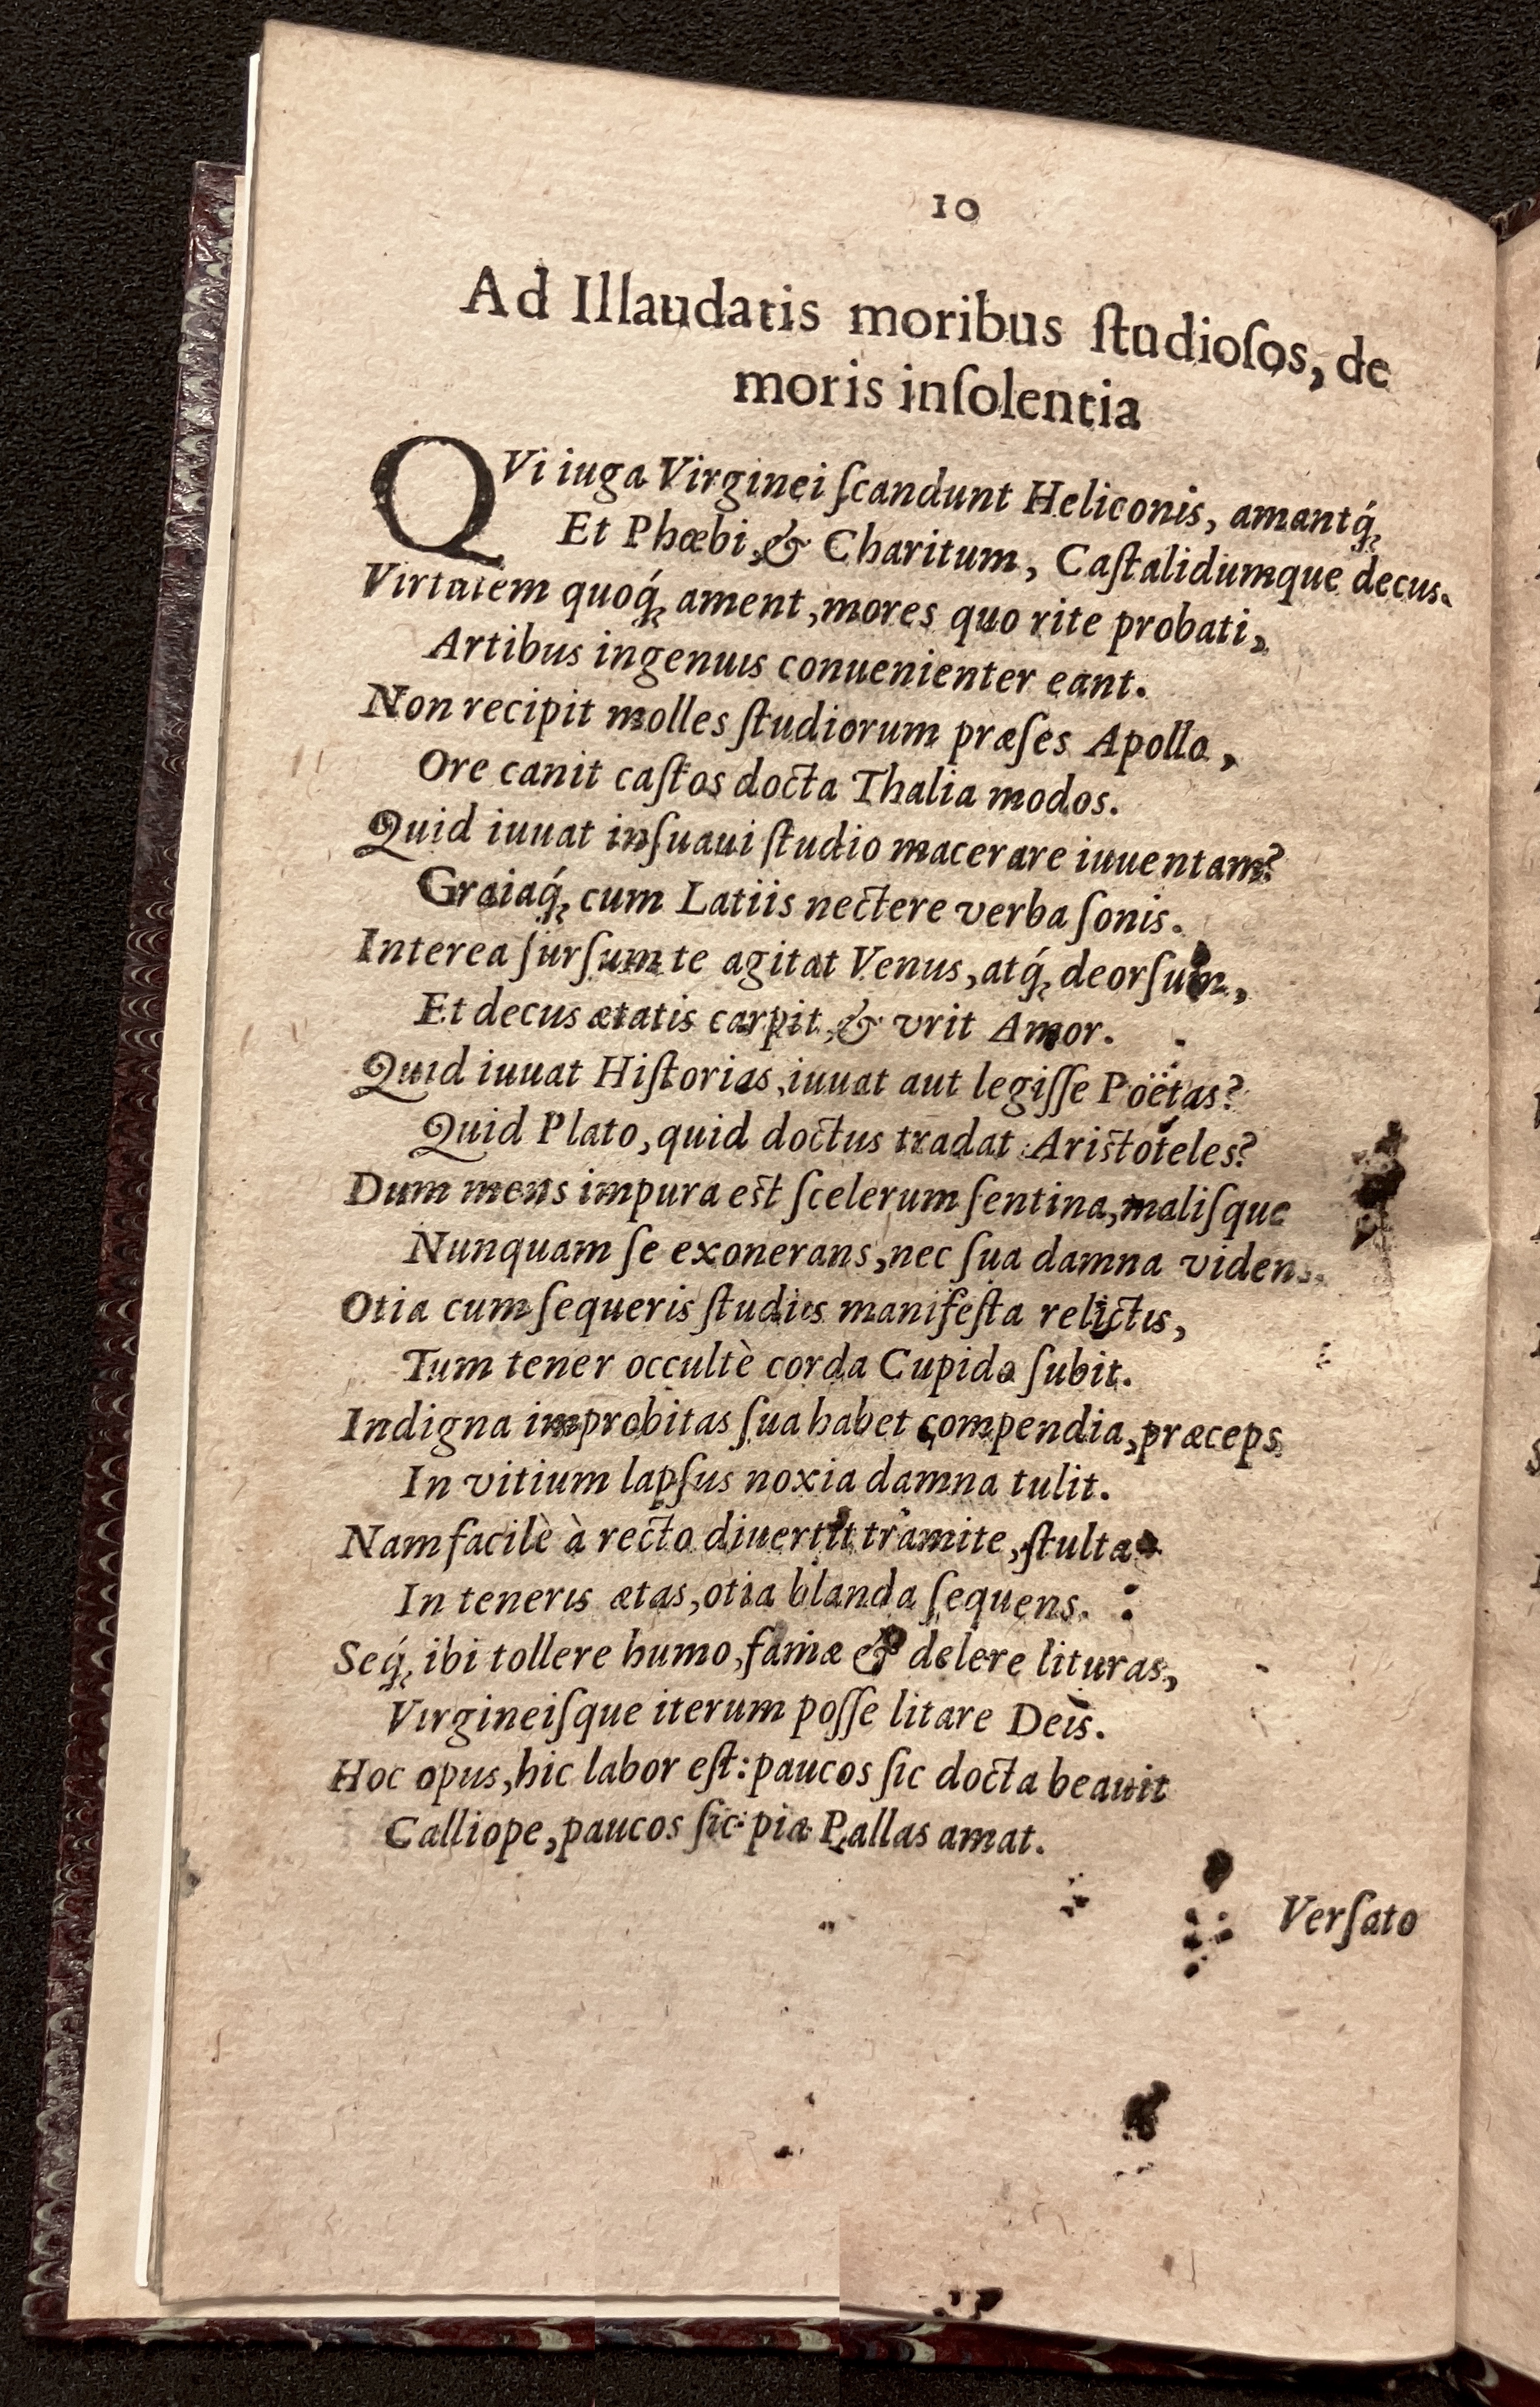 10
Ad Illaudatis moribus ſtudioſos, de
moris inſolentia
QVi iuga Virginei ſcandunt Heliconis, amantq́;
Et Phœbi, & Charitum, Caſtalidumque decus.
Virtutem quoq́; ament, mores quo rite probati,
Artibus ingenuis conuenienter eant.
Non recipit molles ſtudiorum præſes Apollo,
Ore canit caſtos docta Thalia modos.
Quid iuuat inſuaui ſtudio macerare iuuentam?
Graiaq́; cum Latiis nectere verba ſonis.
Interea ſurſum te agitat Venus, atq́; deorſum,
Et decus ætatis carpit, & vrit Amor.
Quid iuuat Hiſtorias, iuuat aut legiſſe Poëtas?
Quid Plato, quid doctus tradat Ariſtoteles?
Dum mens impura eſt ſcelerum ſentina, maliſque
Nunquam ſe exonerans, nec ſua damna videns.
Otia cum ſequeris ſtudiis manifeſta relictis,
Tum tener occultè corda Cupido ſubit.
Indigna improbitas ſua habet compendia, præceps
In vitium lapſus noxia damna tulit.
Nam facilè à recto diuertit tramite, ſtulta
In teneris ætas, otia blanda ſequens.
Seq́; ibi tollere humo, famæ & delere lituras,
Virgineiſque iterum poſſe litare Deis.
Hoc opus, hic labor eſt: paucos ſic docta beauit
Calliope, paucos ſic pia Pallas amat.
Verſato